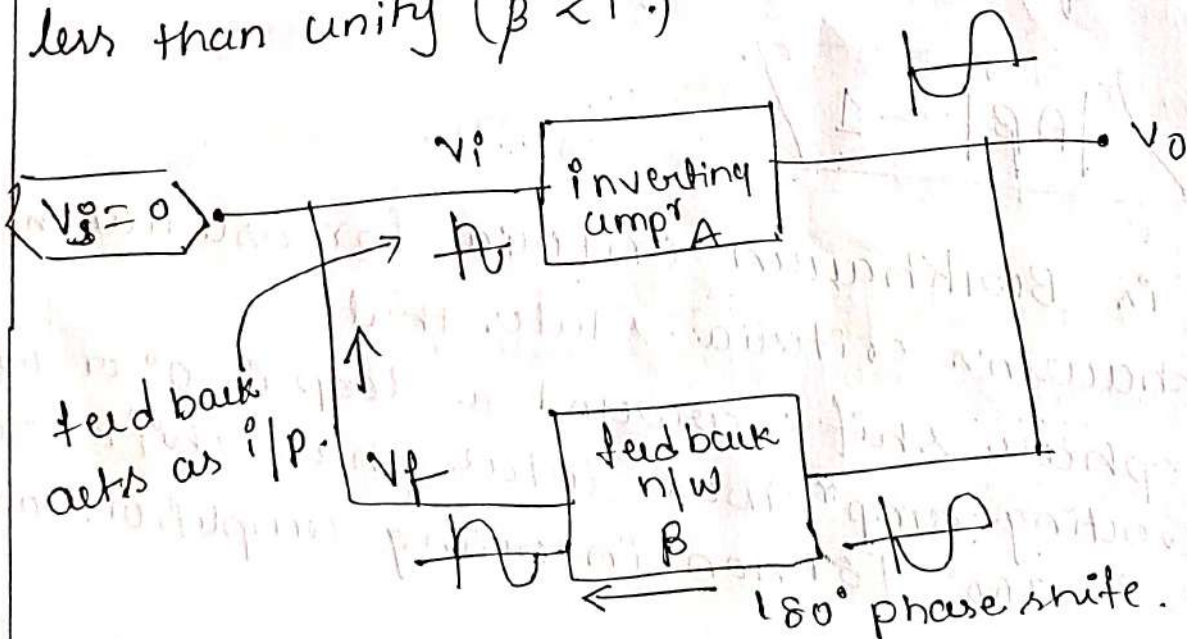 less than unity (β < 1.)
Vs = 0
Vi
inverting
ampr A
V0
feedback
acts as i/p.
Vf
feedback
n/w
β
180° phase shift.